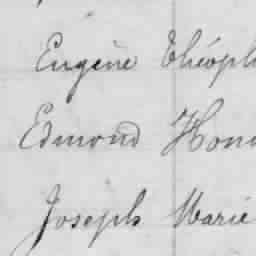 Eugène Théoph
Edmond Hono
Joseph Marie